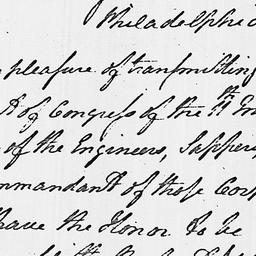 Philadelphia
pleasure of transmitting
of Congress of the 11th
of the Engineers, Sappers
commandant of those Corps
have the Honor to be